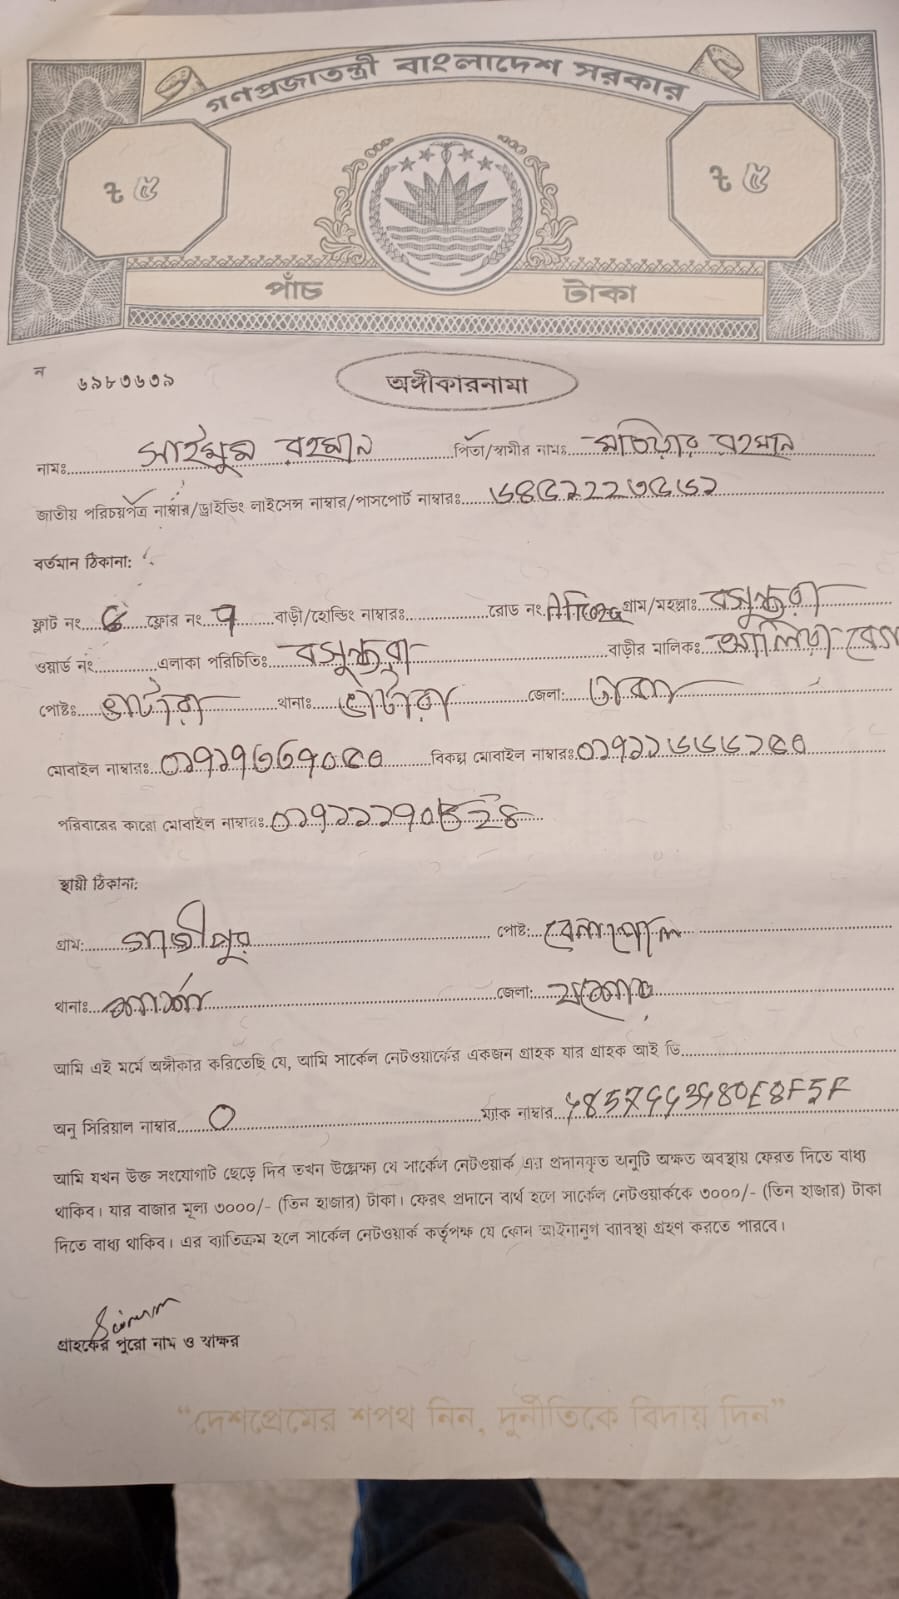 গণপ্রজাতন্ত্রী বাংলাদেশ সরকার
৳ ৫ ৳ ৫
পাঁচ টাকা
ন ৬৯৮৩৬৩৯
অঙ্গীকারনামা
নামঃ সাইমুম রহমান পিতা/স্বামীর নামঃ মতিয়ার রহমান
জাতীয় পরিচয়পত্র নাম্বার/ড্রাইভিং লাইসেন্স নাম্বার/পাসপোর্ট নাম্বারঃ
বর্তমান ঠিকানা:
ফ্লাট নং ফ্লোর নং ৭ বাড়ী/হোল্ডিং নাম্বারঃ রোড নং গ্রাম/মহল্লাঃ বসুন্ধরা
ওয়ার্ড নং এলাকা পরিচিতিঃ বসুন্ধরা বাড়ীর মালিকঃ
পোষ্টঃ ভাটারা থানাঃ ভাটারা জেলা: ঢাকা
মোবাইল নাম্বারঃ বিকল্প মোবাইল নাম্বারঃ
পরিবারের কারো মোবাইল নাম্বারঃ
স্থায়ী ঠিকানা:
গ্রাম: গাজীপুর পোষ্ট: বেনাপোল
থানাঃ শার্শা জেলা: যশোর
আমি এই মর্মে অঙ্গীকার করিতেছি যে, আমি সার্কেল নেটওয়ার্কের একজন গ্রাহক যার গ্রাহক আই ডি
অনু সিরিয়াল নাম্বার 0 ম্যাক নাম্বার
আমি যখন উক্ত সংযোগটি ছেড়ে দিব তখন উল্লেক্ষ্য যে সার্কেল নেটওয়ার্ক এর প্রদানকৃত অনুটি অক্ষত অবস্থায় ফেরত দিতে বাধ্য
থাকিব। যার বাজার মূল্য ৩০০০/- (তিন হাজার) টাকা। ফেরৎ প্রদানে ব্যর্থ হলে সার্কেল নেটওয়ার্ককে ৩০০০/- (তিন হাজার) টাকা
দিতে বাধ্য থাকিব। এর ব্যতিক্রম হলে সার্কেল নেটওয়ার্ক কর্তৃপক্ষ যে কোন আইনানুগ ব্যবস্থা গ্রহণ করতে পারবে।
গ্রাহকের পুরো নাম ও স্বাক্ষর
“দেশপ্রেমের শপথ নিন, দুর্নীতিকে বিদায় দিন”